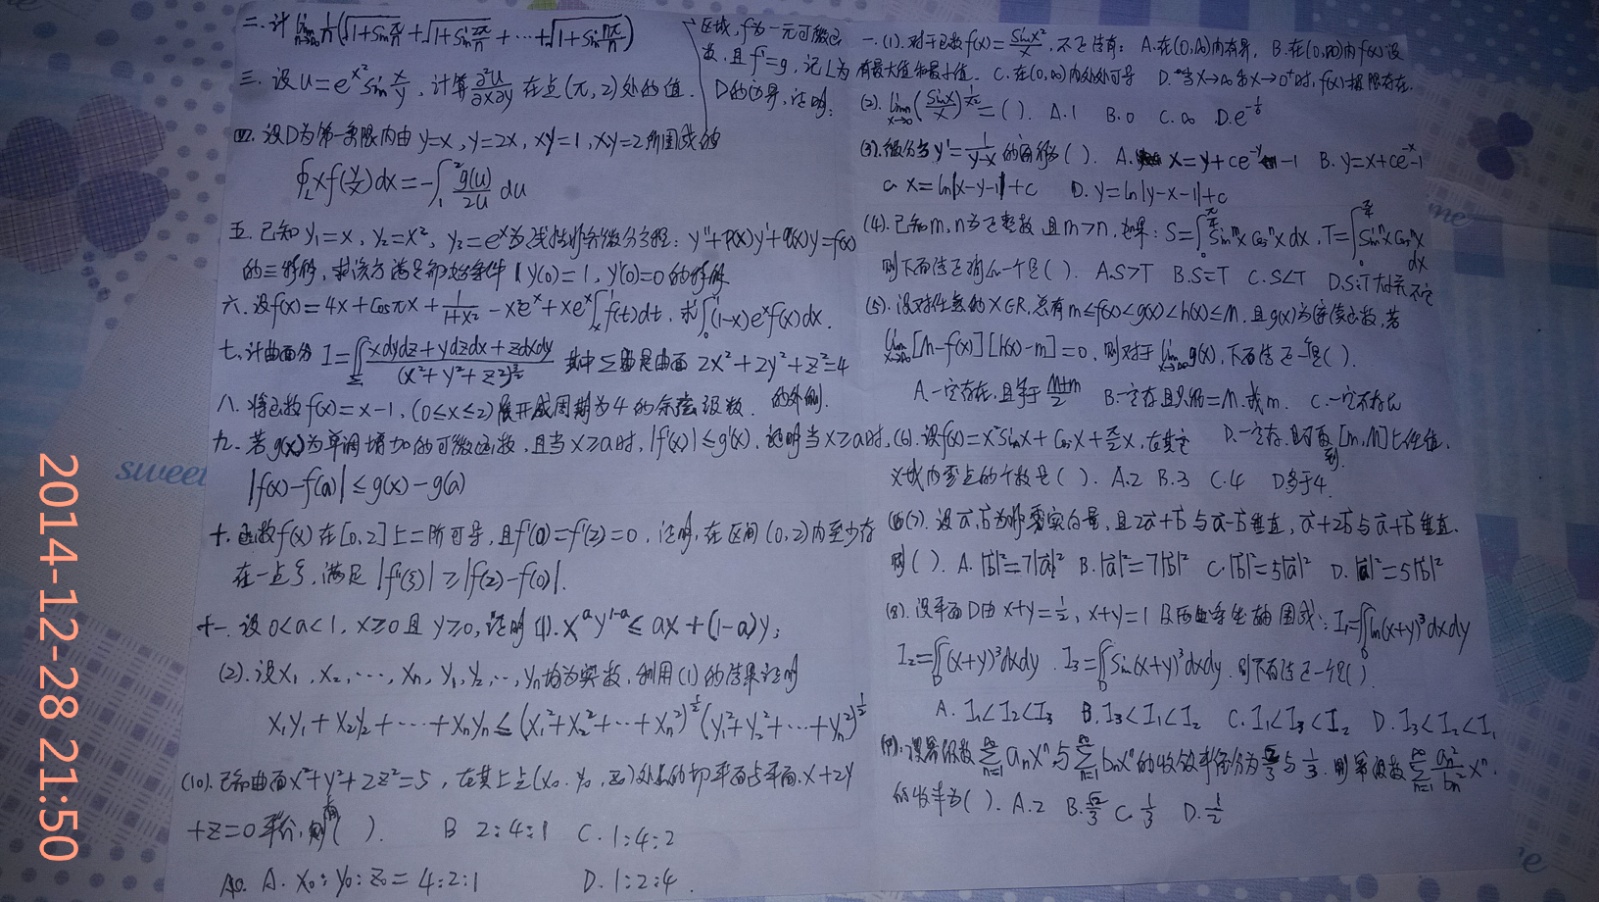 二.计 lim n→∞ 1/n(√1+Sin π/n + √1+Sin 2π/n + … + √1+Sin nπ/n)
三.设 u=e^{x²}Sin x/y,计算 ∂²u/∂x∂y 在点(π,2)处的值.
四.设D为第一象限内由 y=x,y=2x,xy=1,xy=2所围成的
区域,f为一元可微函
数,且f'=g,记L为
D的边界,证明:
∮_L xf(y/x)dx=-∫₁² g(u)/2u du
五.已知 y₁=x,y₂=x²,y₃=e^x为线性非齐微分方程:y''+p(x)y'+q(x)y=f(x)
的三特解,求该方满足初始条件 y(0)=1,y'(0)=0的特解
六.设f(x)=4x+Cosπx+1/1+x²-xe^x+xe^x∫ₓ¹f(t)dt,求∫₀¹(1-x)e^x f(x)dx.
七.计曲面分 I=∬_Σ xdydz+ydzdx+zdxdy/(x²+y²+z²)^{3/2} 其中Σ是曲面 2x²+2y²+z²=4
的外侧.
八.将函数 f(x)=x-1,(0≤x≤2)展开成周期为4的余弦级数.
九.若g(x)为单调增加的可微函数,且当x≥a时,|f'(x)|≤g'(x).证明当x≥a时,
|f(x)-f(a)|≤g(x)-g(a)
十.函数f(x)在[0,2]上二阶可导,且f'(0)=f'(2)=0,证明,在区间(0,2)内至少存
在一点ξ,满足|f''(ξ)|≥|f(2)-f(0)|.
十一.设0<a<1,x≥0且y≥0,证明(1).x^a y^{1-a}≤ax+(1-a)y;
(2).设x₁,x₂,…,xₙ,y₁,y₂,…,yₙ均为实数,利用(1)的结果证明
x₁y₁+x₂y₂+…+xₙyₙ≤(x₁²+x₂²+…+xₙ²)^{1/2}(y₁²+y₂²+…+yₙ²)^{1/2}
(10).已知曲面x²+y²+2z²=5,在其上点(x₀.y₀.z₀)处的切平面与平面x+2y
+z=0平行,则有( ). B 2:4:1 C.1:4:2
A.x₀:y₀:z₀=4:2:1 D.1:2:4.
一.(1).对于函数f(x)=Sinx²/x,不正确有: A.在(0,∞)内有界, B.在(0,∞)内f(x)没
有最大值和最小值. C.在(0,∞)内处处可导 D.当x→∞和x→0⁺时,f(x)极限存在.
(2).lim x→0 (Sinx/x)^{1/x²}=( ). A.1 B.0 C.∞ D.e^{-1/6}
(3).微分方y'=1/y-x的通解为( ). A. x=y+ce^{-y}-1 B.y=x+ce^{-x}-1
C x=ln|x-y-1|+c D.y=ln|y-x-1|+c
(4).已知m,n为正整数且m>n,如果:S=∫₀^{π/2}Sin^m x Cos^n x dx,T=∫₀^{π/2}Sin^n x Cos^n x dx
则下面结正确一个是( ). A.S>T B.S=T C.S<T D.S;T大小关不定
(5).设对任意的x∈R,总有m≤f(x)<g(x)<h(x)≤M,且g(x)为连续函数,若
lim x→∞ [M-f(x)][h(x)-m]=0,则对于lim x→∞ g(x),下面结正一是( ).
A.一定存在,且等于 M+m/2 B.一定存且只能=M,或m. C.一定不存在
D.一定存,且可取到[m,M]上任值.
(6).设f(x)=x²Sinx+Cosx+π/2x,在其定
义域内零点的个数是( ). A.2 B.3 C.4 D.多于4.
(7).设a,b为非零实向量,且2a+b与a-b垂直,a+2b与a+b垂直.
则( ). A.|b|²=7|a|² B.|a|²=7|b|² C.|b|²=5|a|² D.|a|²=5|b|²
(8).设平面D由x+y=1/2,x+y=1及两坐标轴围成;I₁=∬_D ln(x+y)³dxdy
I₂=∬_D(x+y)³dxdy.I₃=∬_D Sin(x+y)³dxdy.则下面结正一个是( ).
A.I₁<I₂<I₃ B.I₃<I₁<I₂ C.I₁<I₃<I₂ D.I₃<I₂<I₁
(9).设幂级数∑aₙxⁿ与∑bₙxⁿ的收敛半径分为√2/3与1/3.则幂级数∑aₙ²/bₙ² xⁿ.
的收半为( ). A.2 B.√2/3 C.1/3 D.1/2
sweet
me
2014-12-28 21:50